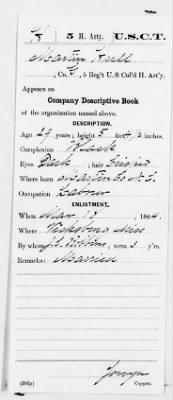 5 H. Arty. U.S.C.T.
Martin
, Co. 5 Reg't U.S. Col'd H. Art'y.
Appears on
Company Descriptive Book
of the organization named above.
DESCRIPTION.
Age years; height 5 feet inches.
Complexion Black
Eyes Dark; hair
Where born Martin Co N.C.
Occupation Laborer
ENLISTMENT.
When Mar , 1864.
Where Vicksburg Miss
By whom ; term 3 y'rs.
Remarks: Married
Copyist.